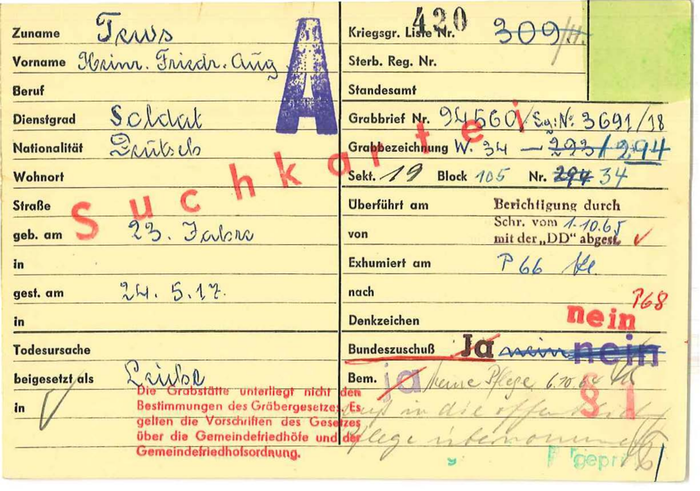 Zuname Tews
Vorname Heinr. Friedr. Aug.
Beruf
Dienstgrad Soldat
Nationalität Deutsch
Wohnort
Straße
geb. am 23. Jahre
in
gest. am 24.5.17.
in
Todesursache
beigesetzt als Leiche
in
A
Suchkartei
Die Grabstätte unterliegt nicht den
Bestimmungen des Gräbergesetzes. Es
gelten die Vorschriften des Gesetzes
über die Gemeindefriedhöfe und der
Gemeindefriedhofsordnung.
420
Kriegsgr. Liste Nr. 309/II.
Sterb. Reg. Nr.
Standesamt
Grabbrief Nr. 94560/Eg: No. 3691/18
Grabbezeichnung W. 34 – 293/294
Sekt. 19 Block 105 Nr. 294 34
Überführt am
von
Berichtigung durch
Schr. vom 1.10.65
mit der „DD" abgest.
Exhumiert am P 66
nach P68
Denkzeichen nein
Bundeszuschuß Ja nein nein
Bem. ja keine Pflege 6.10.64
§ 1
in die öffentliche
Pflege übernommen
gepr.